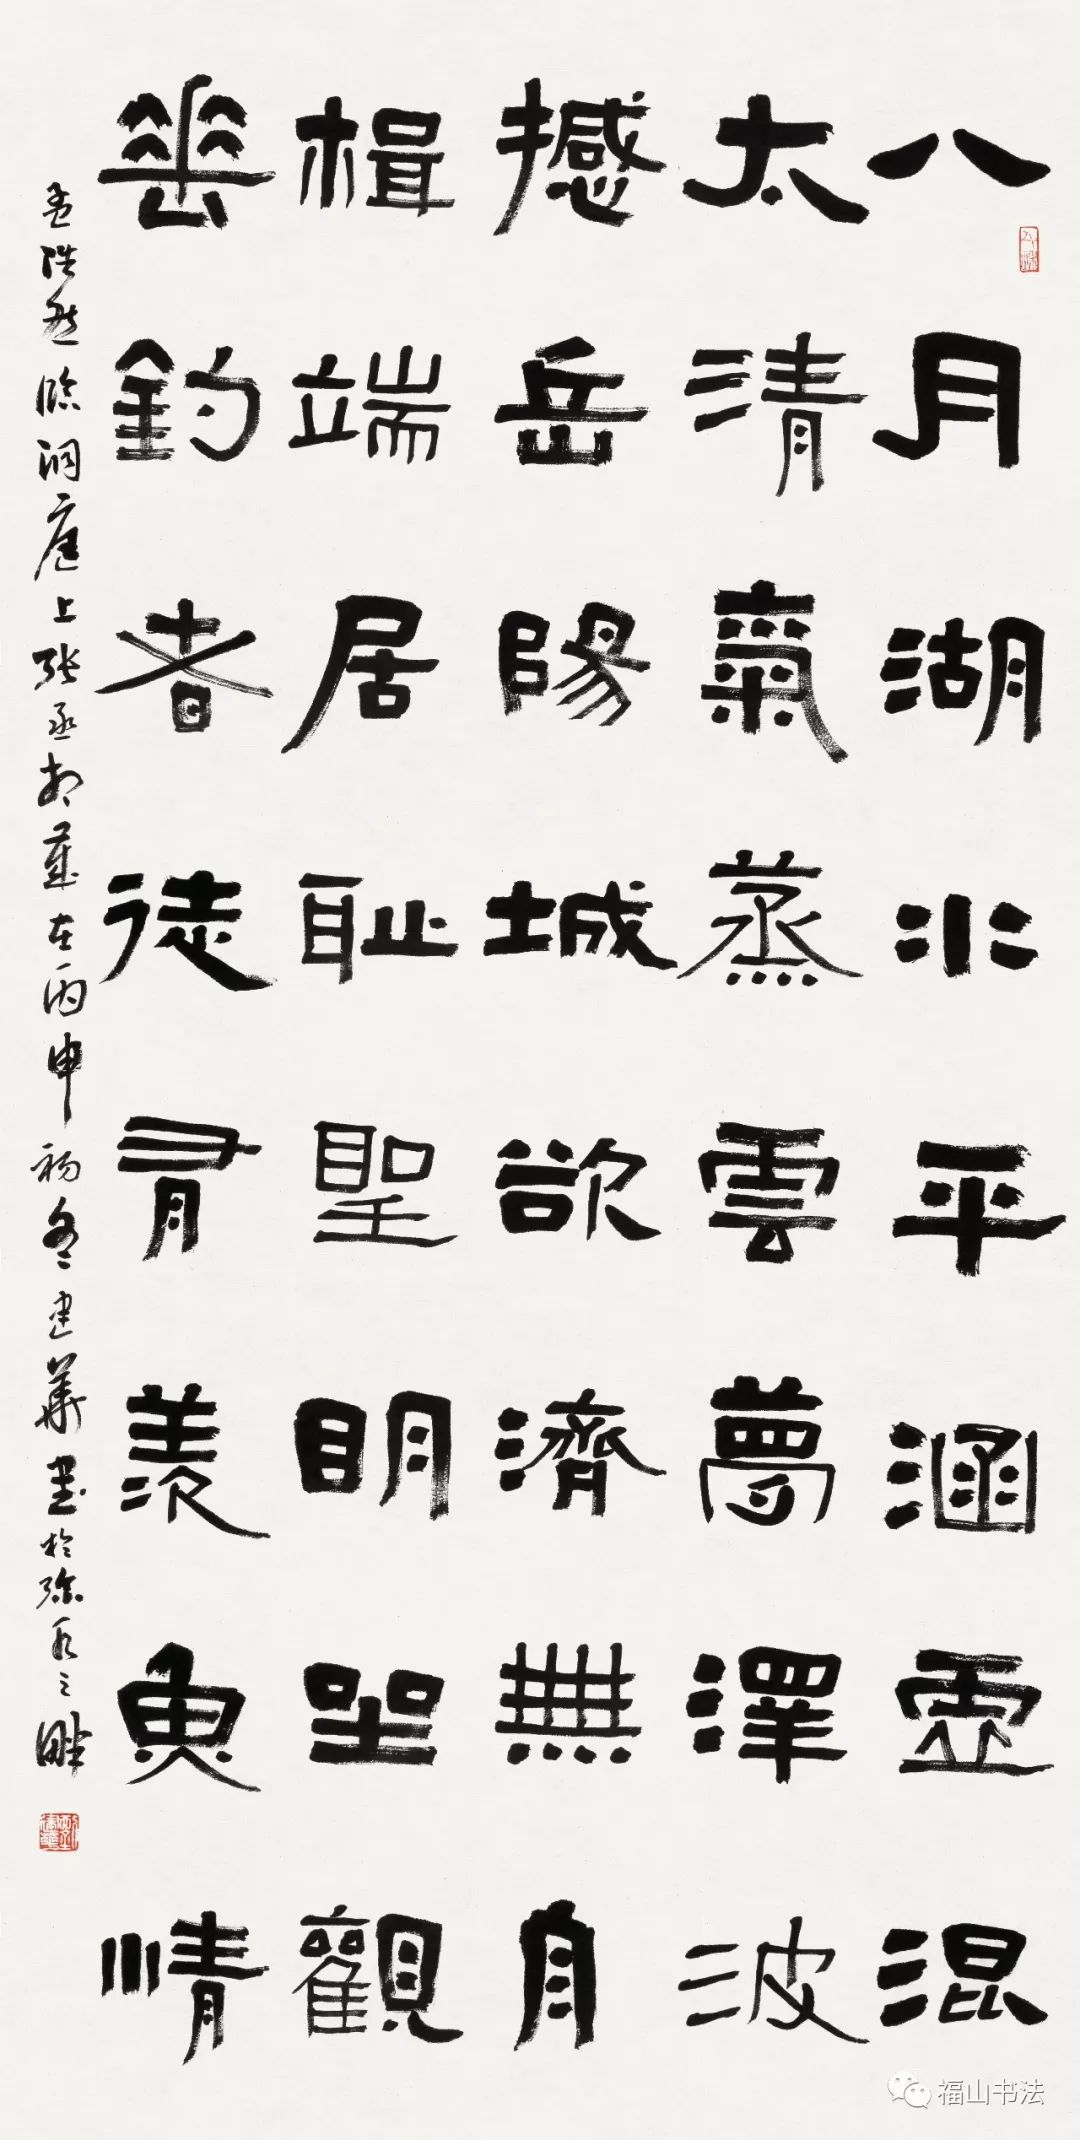 八月湖水平涵虛混
太清氣蒸雲夢澤波
撼岳陽城欲濟無舟
楫端居耻聖明坐觀
垂釣者徒有羨魚情
孟浩然臨洞庭上張丞相歲在丙申初冬建華書於弥水之畔
福山书法